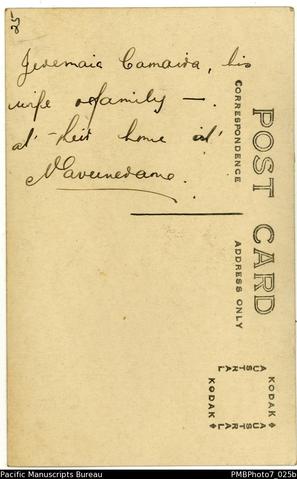 25
Jeremaia Camaira, his
wife & family —.
at their home at
Navunedamo.
POST CARD
CORRESPONDENCE
ADDRESS ONLY
KODAK
AUSTRAL
AUSTRAL
KODAK
Pacific Manuscripts Bureau
PMBPhoto7_025b